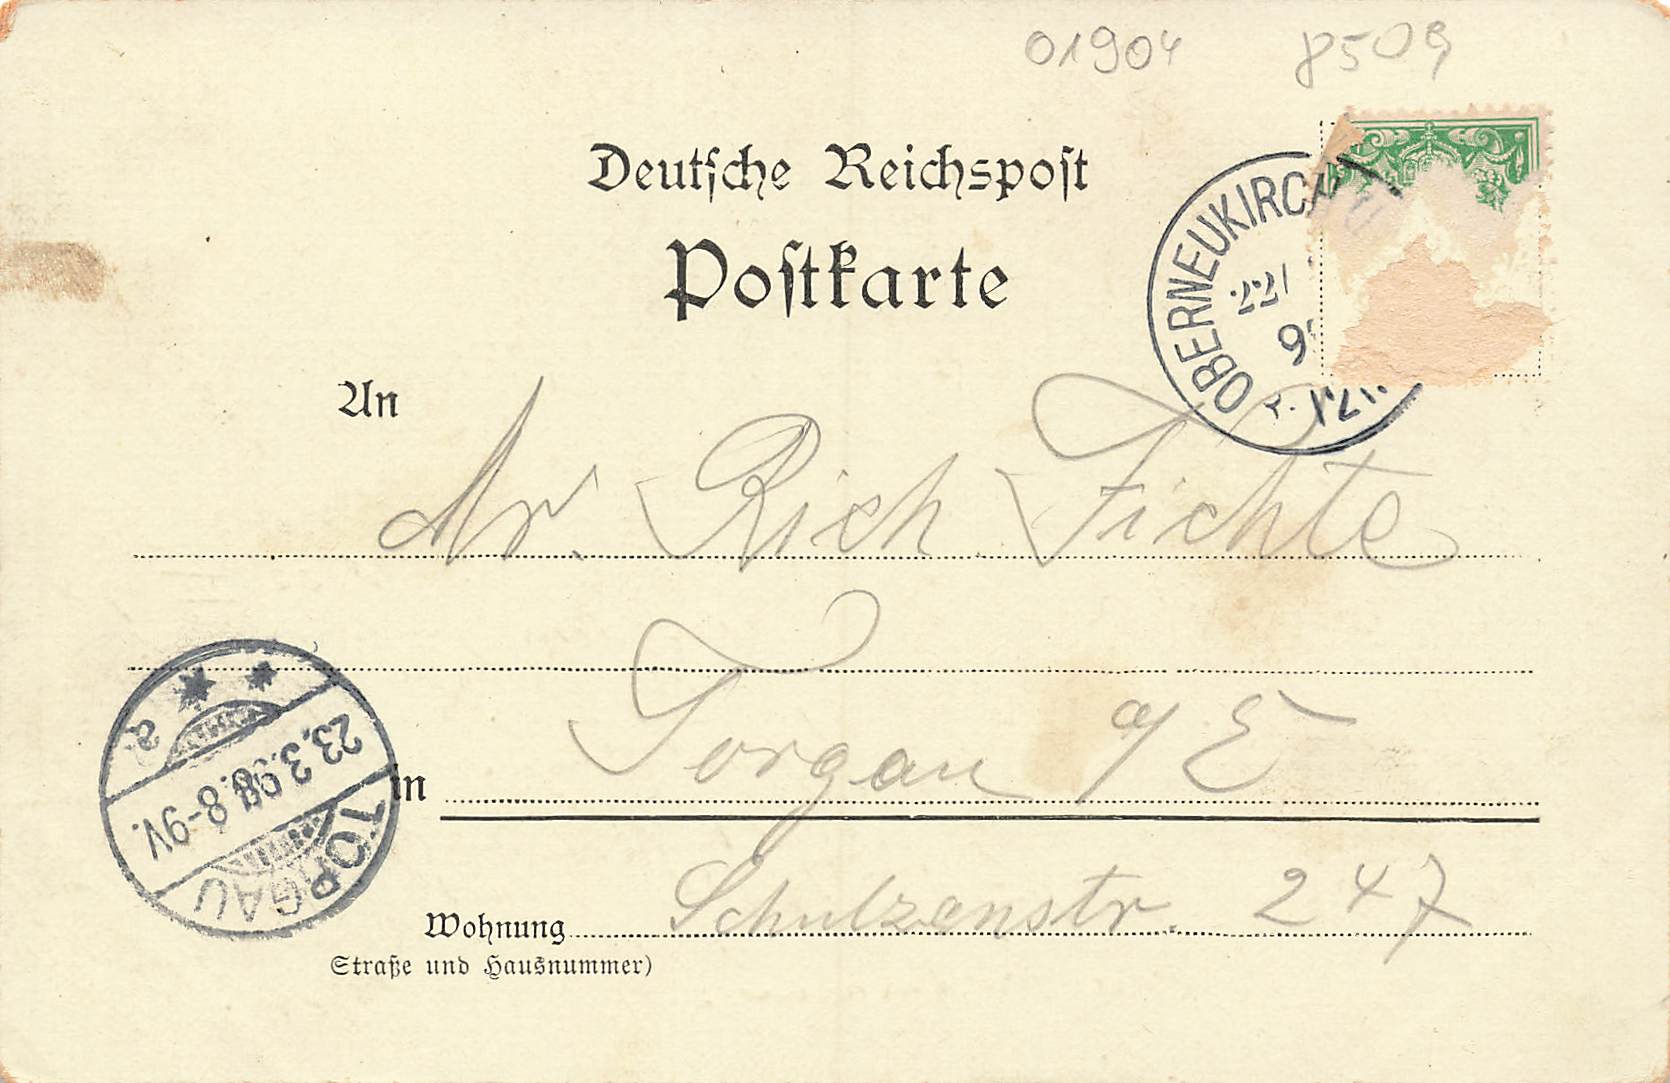 01904 8509
Deutsche Reichspost
Postkarte
OBERNEUKIRCH
22/
9
6
An
Hr. Rich. Fichte
Torgau a/E
in
Wohnung Schulzenstr. 247
Straße und Hausnummer)
TORGAU
23.3.98. 8-9V.
a.